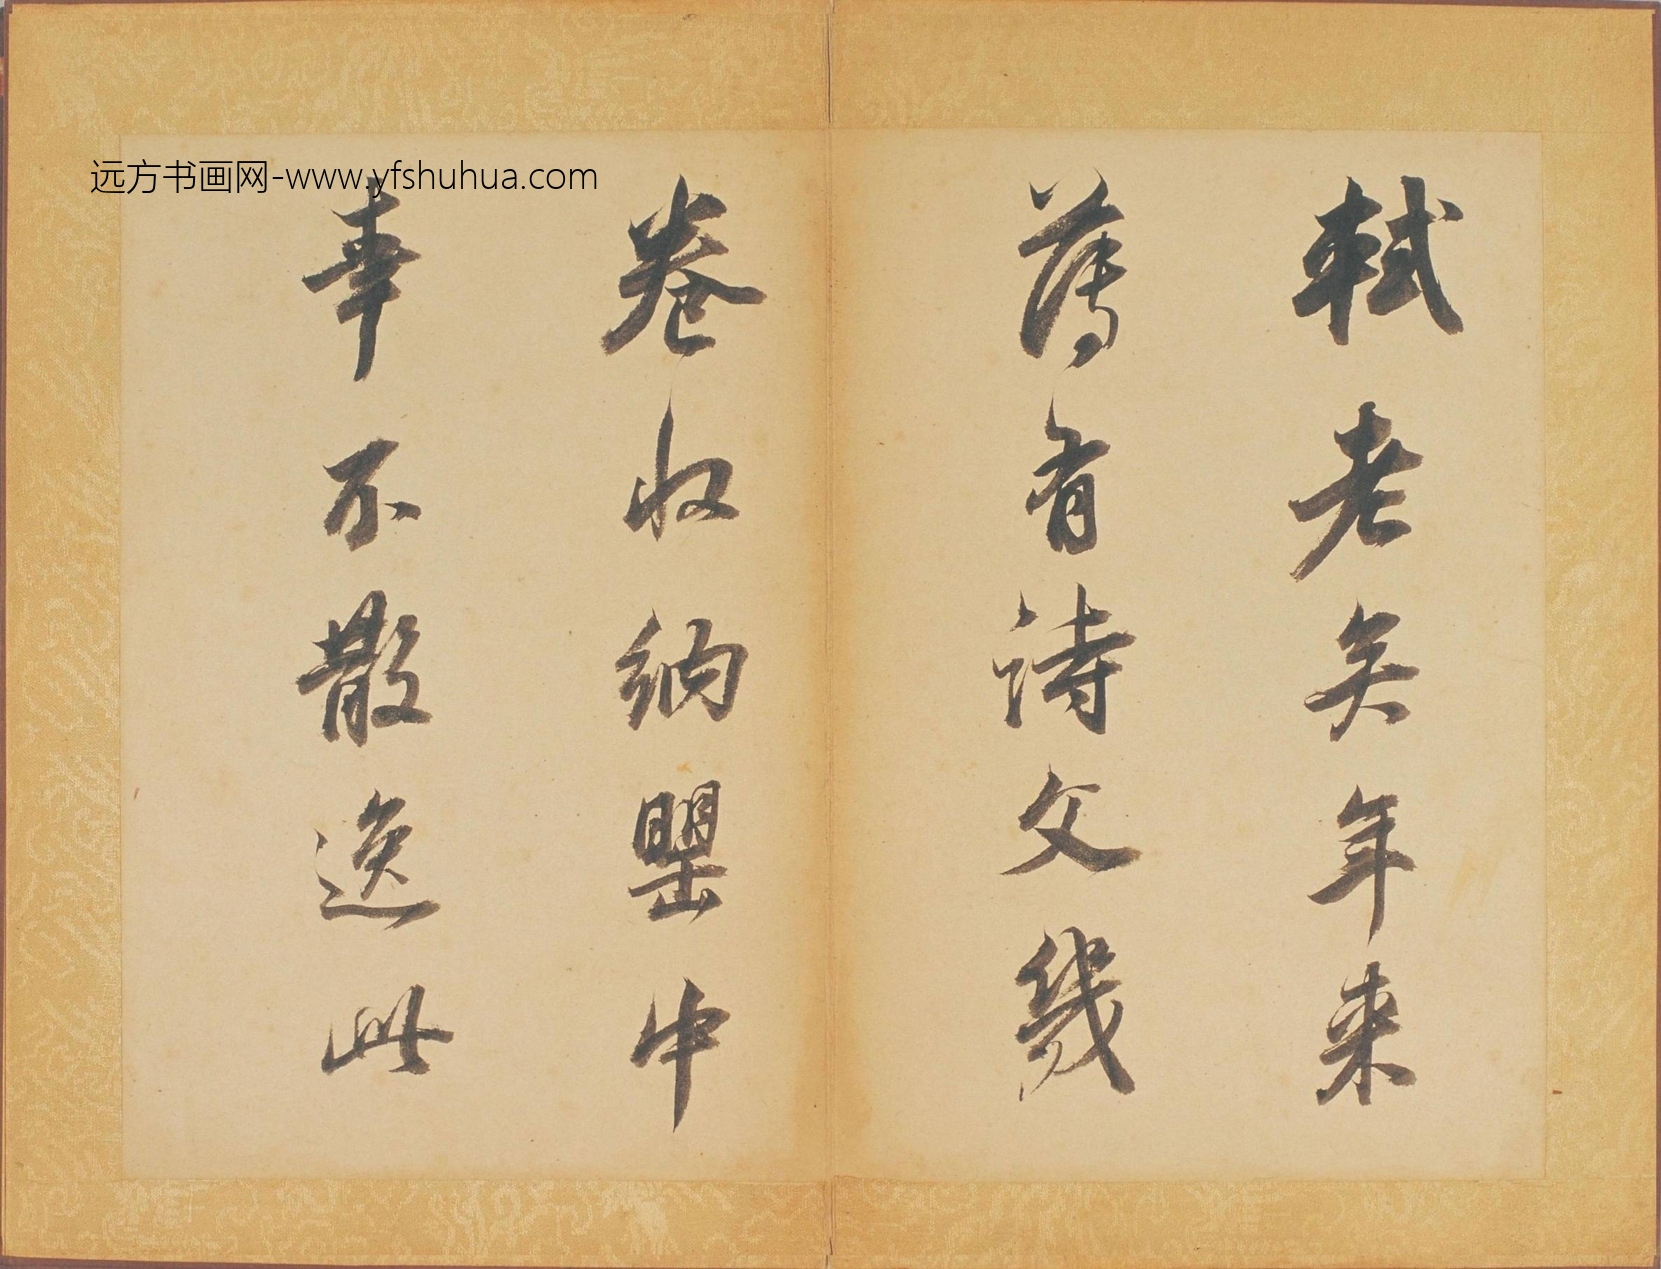 远方书画网-www.yfshuhua.com
軾老矣年来
薄有诗文幾
卷收纳罌中
幸不散逸此